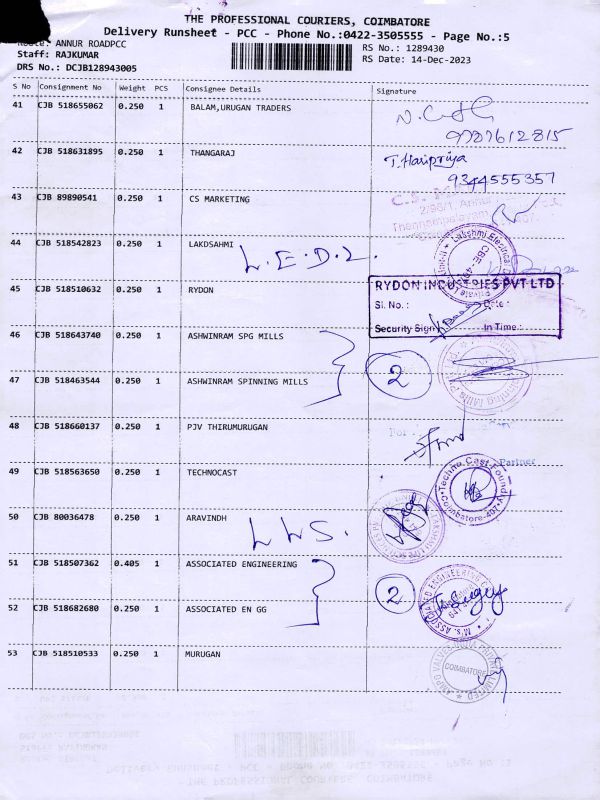 THE PROFESSIONAL COURIERS, COIMBATORE
Delivery Runsheet - PCC - Phone No.:0422-3505555 - Page No.:5
Route: ANNUR ROADPCC
RS No.: 1289430
Staff: RAJKUMAR
RS Date: 14-Dec-2023
DRS No.: DCJB128943005
S No Consignment No Weight PCS Consignee Details Signature
41 CJB 518655062 0.250 1 BALAM,URUGAN TRADERS
9787612815
42 CJB 518631895 0.250 1 THANGARAJ T. Haripriya
9344555357
43 CJB 89890541 0.250 1 CS MARKETING
44 CJB 518542823 0.250 1 LAKDSAHMI
L.E.D.2.
Lakshmi Electrical
45 CJB 518510632 0.250 1 RYDON
RYDON INDUSTRIES PVT LTD
Sl. No.: Date:
Security Sign In Time:
46 CJB 518643740 0.250 1 ASHWINRAM SPG MILLS
2
47 CJB 518463544 0.250 1 ASHWINRAM SPINNING MILLS
48 CJB 518660137 0.250 1 PJV THIRUMURUGAN
For
Partner
49 CJB 518563650 0.250 1 TECHNOCAST
Techno Cast Found
Coimbatore-407
50 CJB 80036478 0.250 1 ARAVINDH
L L S.
51 CJB 518507362 0.405 1 ASSOCIATED ENGINEERING
2
M/s. ASSOCIATED ENGINEERING
52 CJB 518682680 0.250 1 ASSOCIATED EN GG
53 CJB 518510533 0.250 1 MURUGAN
AMPO VALVES INDIA PRIVATE LIMITED
COIMBATORE